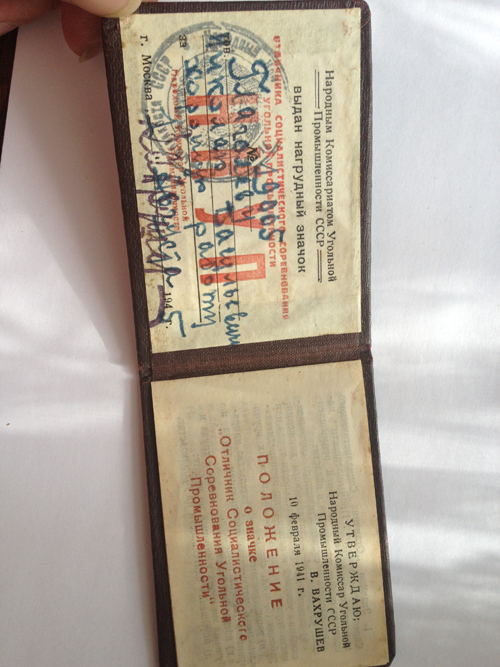 Народным Комиссариатом Угольной
Промышленности СССР
ВЫДАН НАГРУДНЫЙ ЗНАЧОК
ОТЛИЧНИКА СОЦИАЛИСТИЧЕСКОГО СОРЕВНОВАНИЯ
УГОЛЬНОЙ ПРОМЫШЛЕННОСТИ
№
тов.
Николаю Васильевичу
за хорошую работу
г. Москва
1945 г.
УТВЕРЖДАЮ:
Народный Комиссар Угольной
Промышленности СССР
В. ВАХРУШЕВ
10 февраля 1941 г.
ПОЛОЖЕНИЕ
о значке
„Отличник Социалистического
Соревнования Угольной
Промышленности"